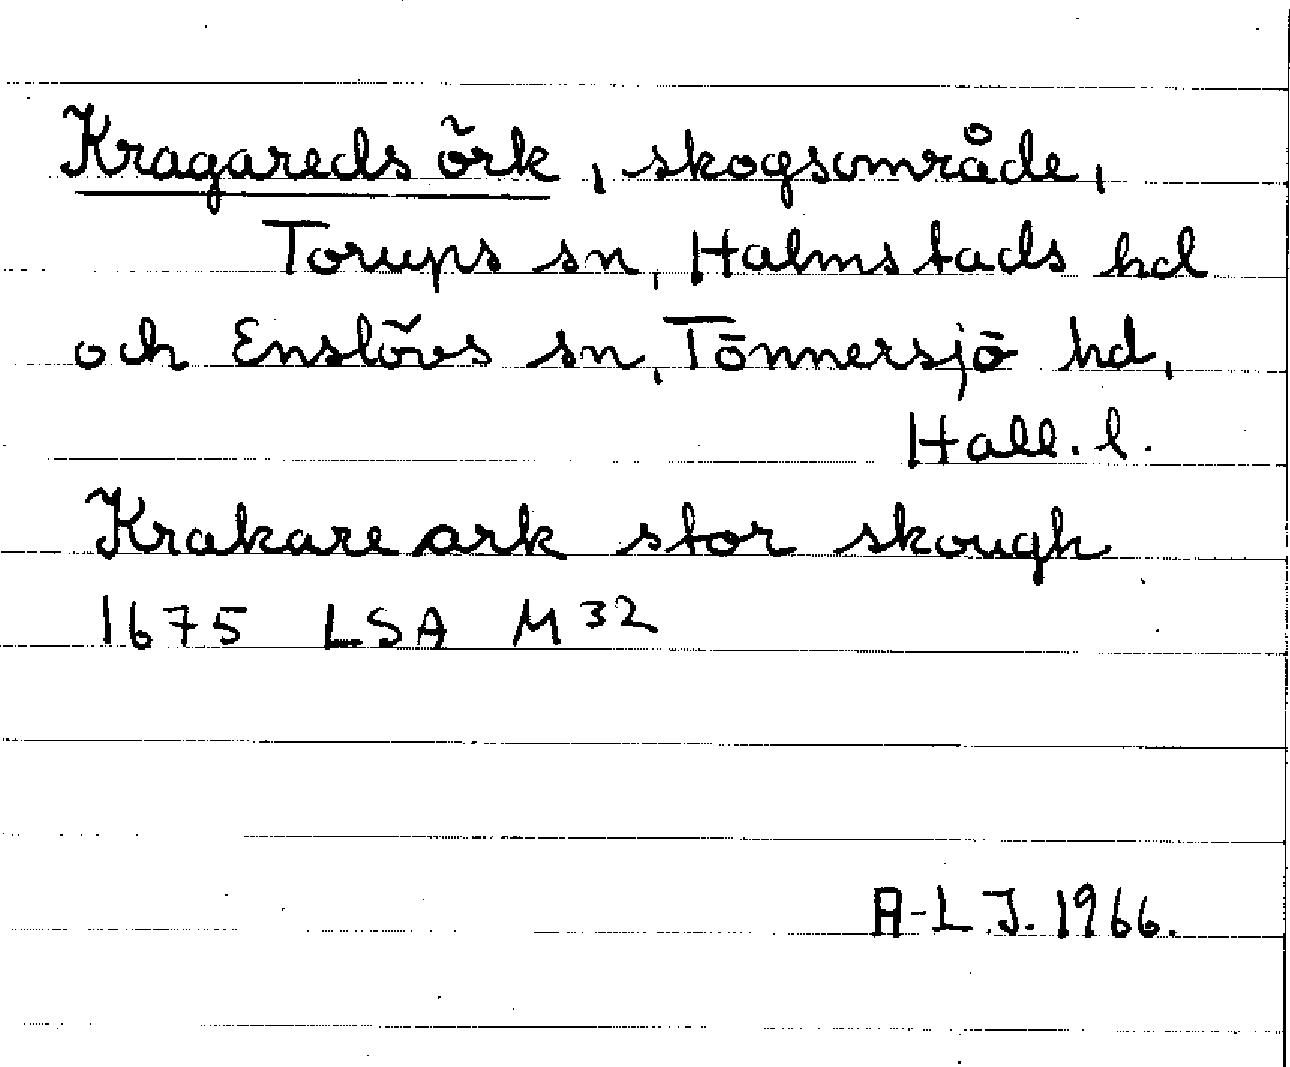 Kragareds örk, skogsområde,
Torups sn, Halmstads hd
och Enslövs sn, Tönnersjö hd,
Hall. l.
Krakare ark stor skough
1675 LSA M 32
A-L J. 1966.